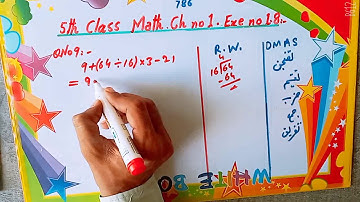 786
5th Class Math. Ch no 1. Exe no 1.8:-
Q No 9:-
9+(64÷16)×3-21
= 9
R.W.
4
16√64
64
DMAS
تقسیم
ضرب
جمع
تفریق
WHITE BO